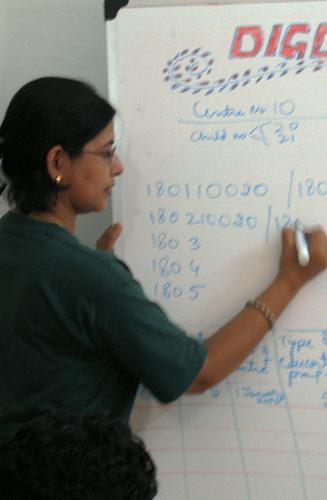 DIGI
Centre No 10
Child no 20
21
180110020 / 180
180210020 / 180
1803
1804
1805
Type
educat
prog
1 January